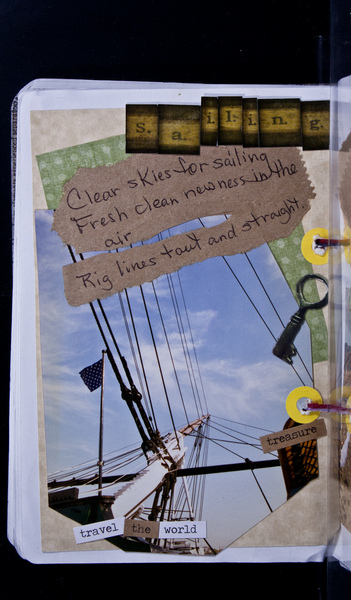 s.a.i.l.i.n.g.
Clear skies for sailing
Fresh clean newness in the
air
Rig lines taut and straight.
treasure
travel the world